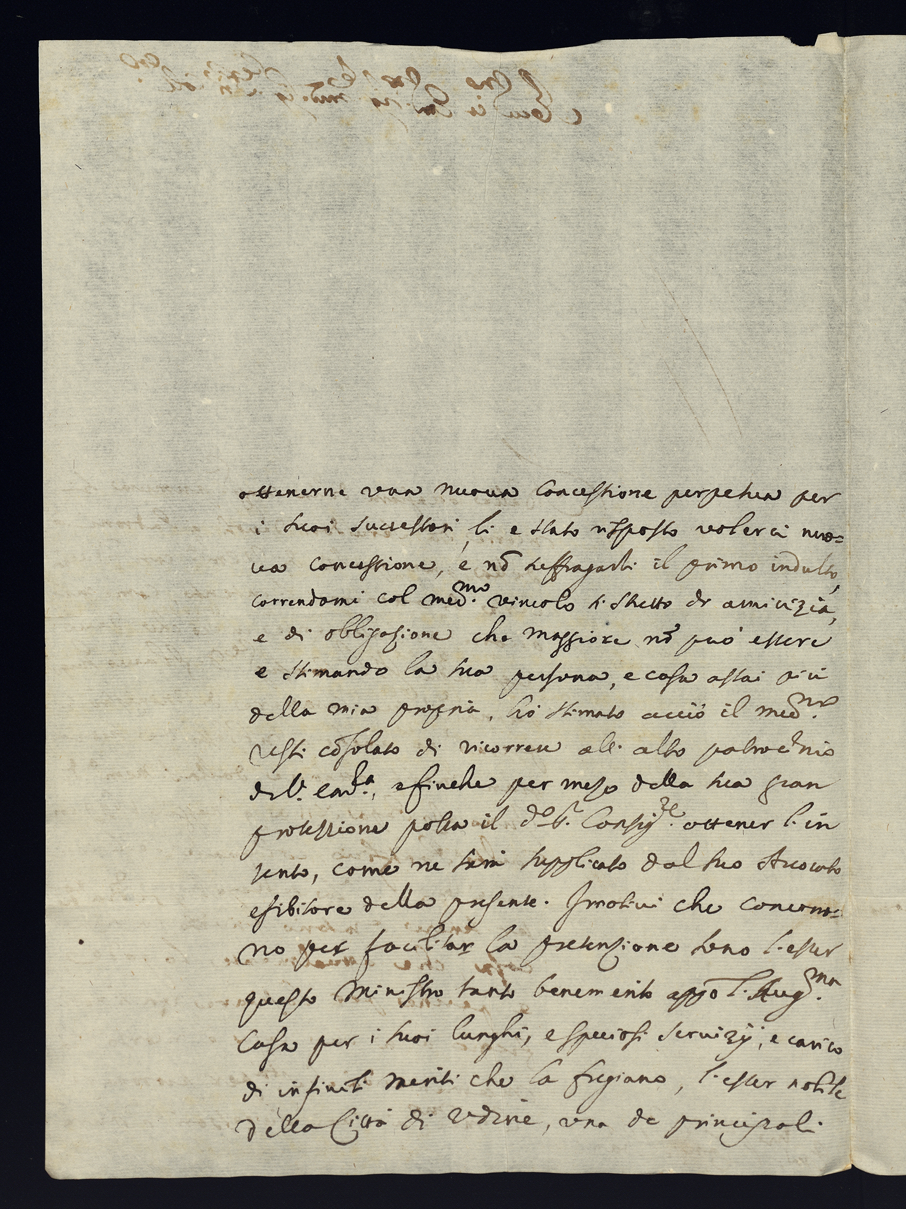 ottenerne vna nuoua Concessione perpetua per
i suoi Successori, li e stato risposto volerci nuo=
ua concessione, e nõ suffragarli il primo indulto,
correndomi col med.mo vincolo si stretto di amicizia,
e di obligazione che maggiore nõ può essere
e stimando la sua persona, e casa assai più
della mia propria, hò stimato acciò il med.mo
resti cõsolato di ricorrere all' alto patrocinio
dell' em.za, affinche per mezo della sua gran
protezzione possa il d.o S.r Consig.re ottener l' in
tento, come ne sarà supplicato dal suo Auocato
esibitore della presente. I motiui che concerno=
no per facilitar la pretenzione sono l' esser
questo Ministro tanto benemerito appo l' Aug.ma
Casa per i suoi lunghi, e speciosi Seruizÿ, e carico
di infiniti meriti che la fregiano, l' esser nobile
della Città di Vdine, vna de principali